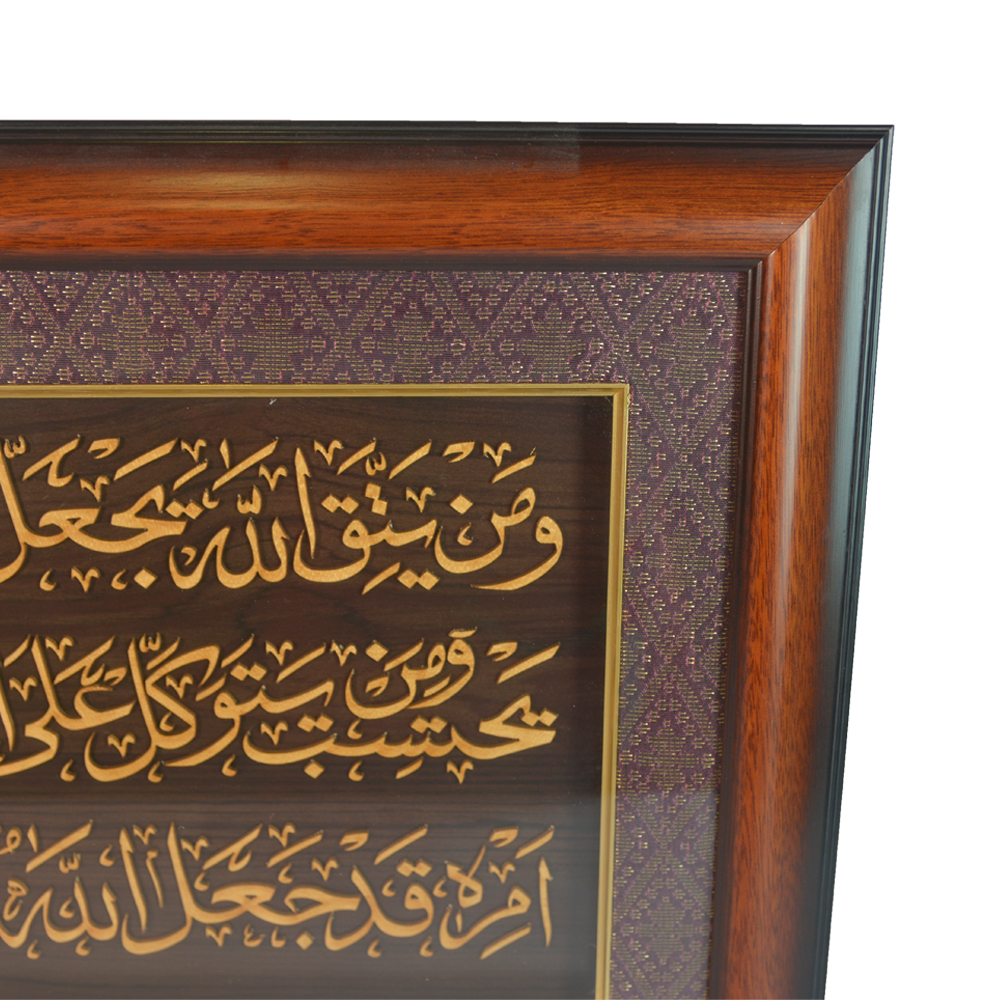 وَمَنْ يَتَّقِ اللّٰهَ يَجْعَلْ
يَحْتَسِبُ وَمَنْ يَتَوَكَّلْ عَلَى
أَمْرِهِ قَدْ جَعَلَ اللّٰهُ